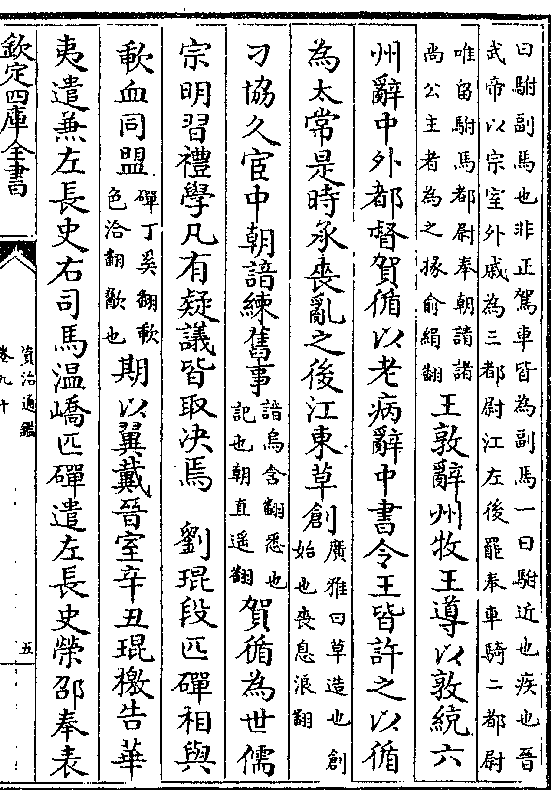 曰駙副馬也非正駕車皆為副馬一曰駙近也疾也晉
武帝以宗室外戚為三都尉江左後罷奉車騎二都尉
唯留駙馬都尉奉朝請諸
尚公主者為之掾俞絹翻
王敦辭州牧王導以敦統六
州辭中外都督賀循以老病辭中書令王皆許之以循
為太常是時承喪亂之後江東草創
廣雅曰草造也創
始也喪息浪翻
刁協久宦中朝諳練舊事
諳烏含翻悉也
記也朝直遥翻
賀循為世儒
宗明習禮學凡有疑議皆取決焉　劉琨段匹磾相與
歃血同盟
磾丁奚翻歃
色洽翻歠也
期以翼戴晉室辛丑琨檄告華
夷遣兼左長史右司馬温嶠匹磾遣左長史榮邵奉表
欽定四庫全書
資治通鑑
卷九十
五